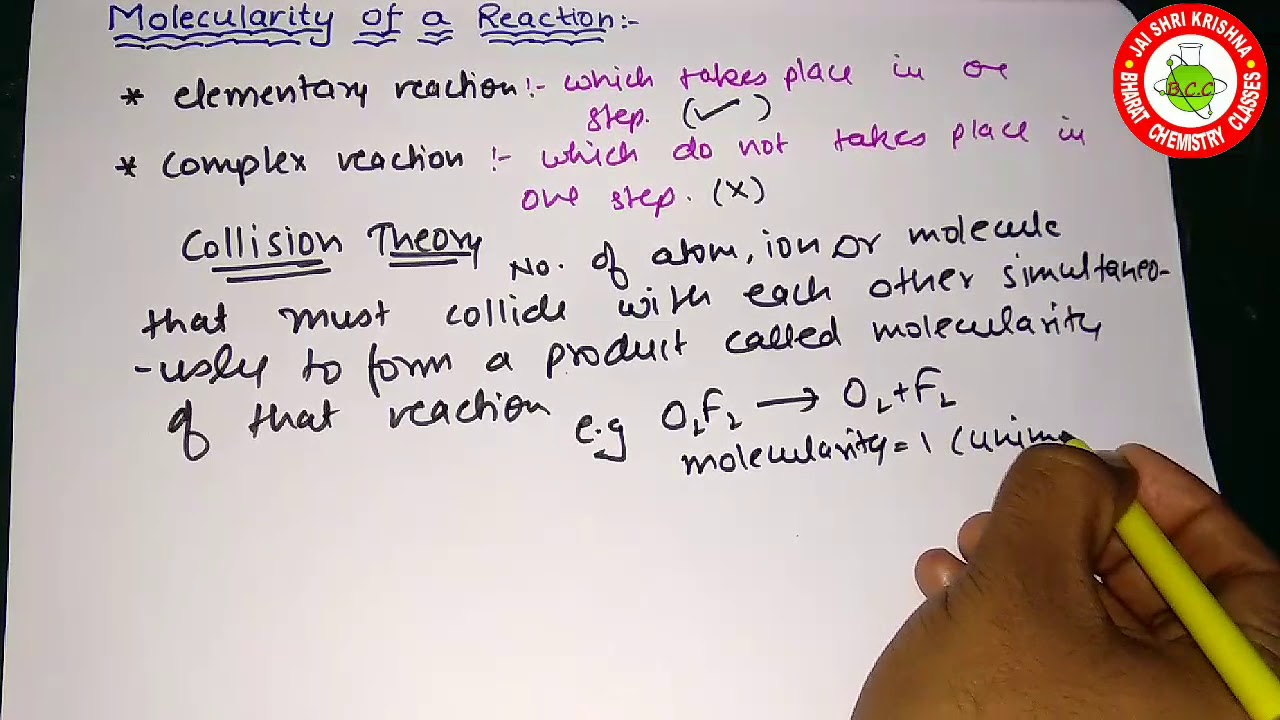 Molecularity of a Reaction:-
* elementary reaction:- which takes place in oe
step. (✓)
* Complex reaction :- which do not takes place in
one step. (x)
Collision Theory No. of atom, ion or molecule
that must collide with each other simultaneo-
-usly to form a product called molecularity
of that reaction e.g O₂F₂ → O₂+F₂
molecularity = 1 (unimo
JAI SHRI KRISHNA
B.C.C
BHARAT CHEMISTRY CLASSES